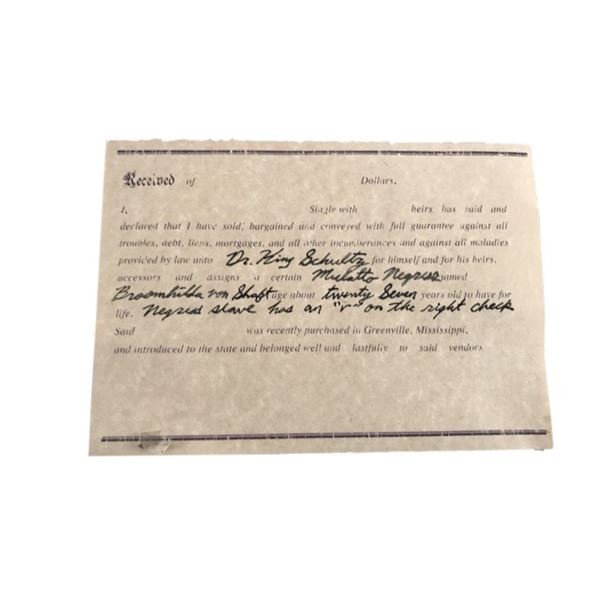 Received of Dollars.
I, Slagle with heirs has said and
declared that I have sold, bargained and conveyed with full guarantee against all
troubles, debt, liens, mortgages, and all other incumberances and against all maladies
provided by law unto Dr. King Schultz for himself and for his heirs,
accessors and assigns a certain Mulatto Negress named
Broomhilda von Shaft age about twenty Seven years old to have for
life. Negress slave has an "r" on the right cheek
Said was recently purchased in Greenville, Mississippi.
and introduced to the state and belonged well and lastfully to said vendors